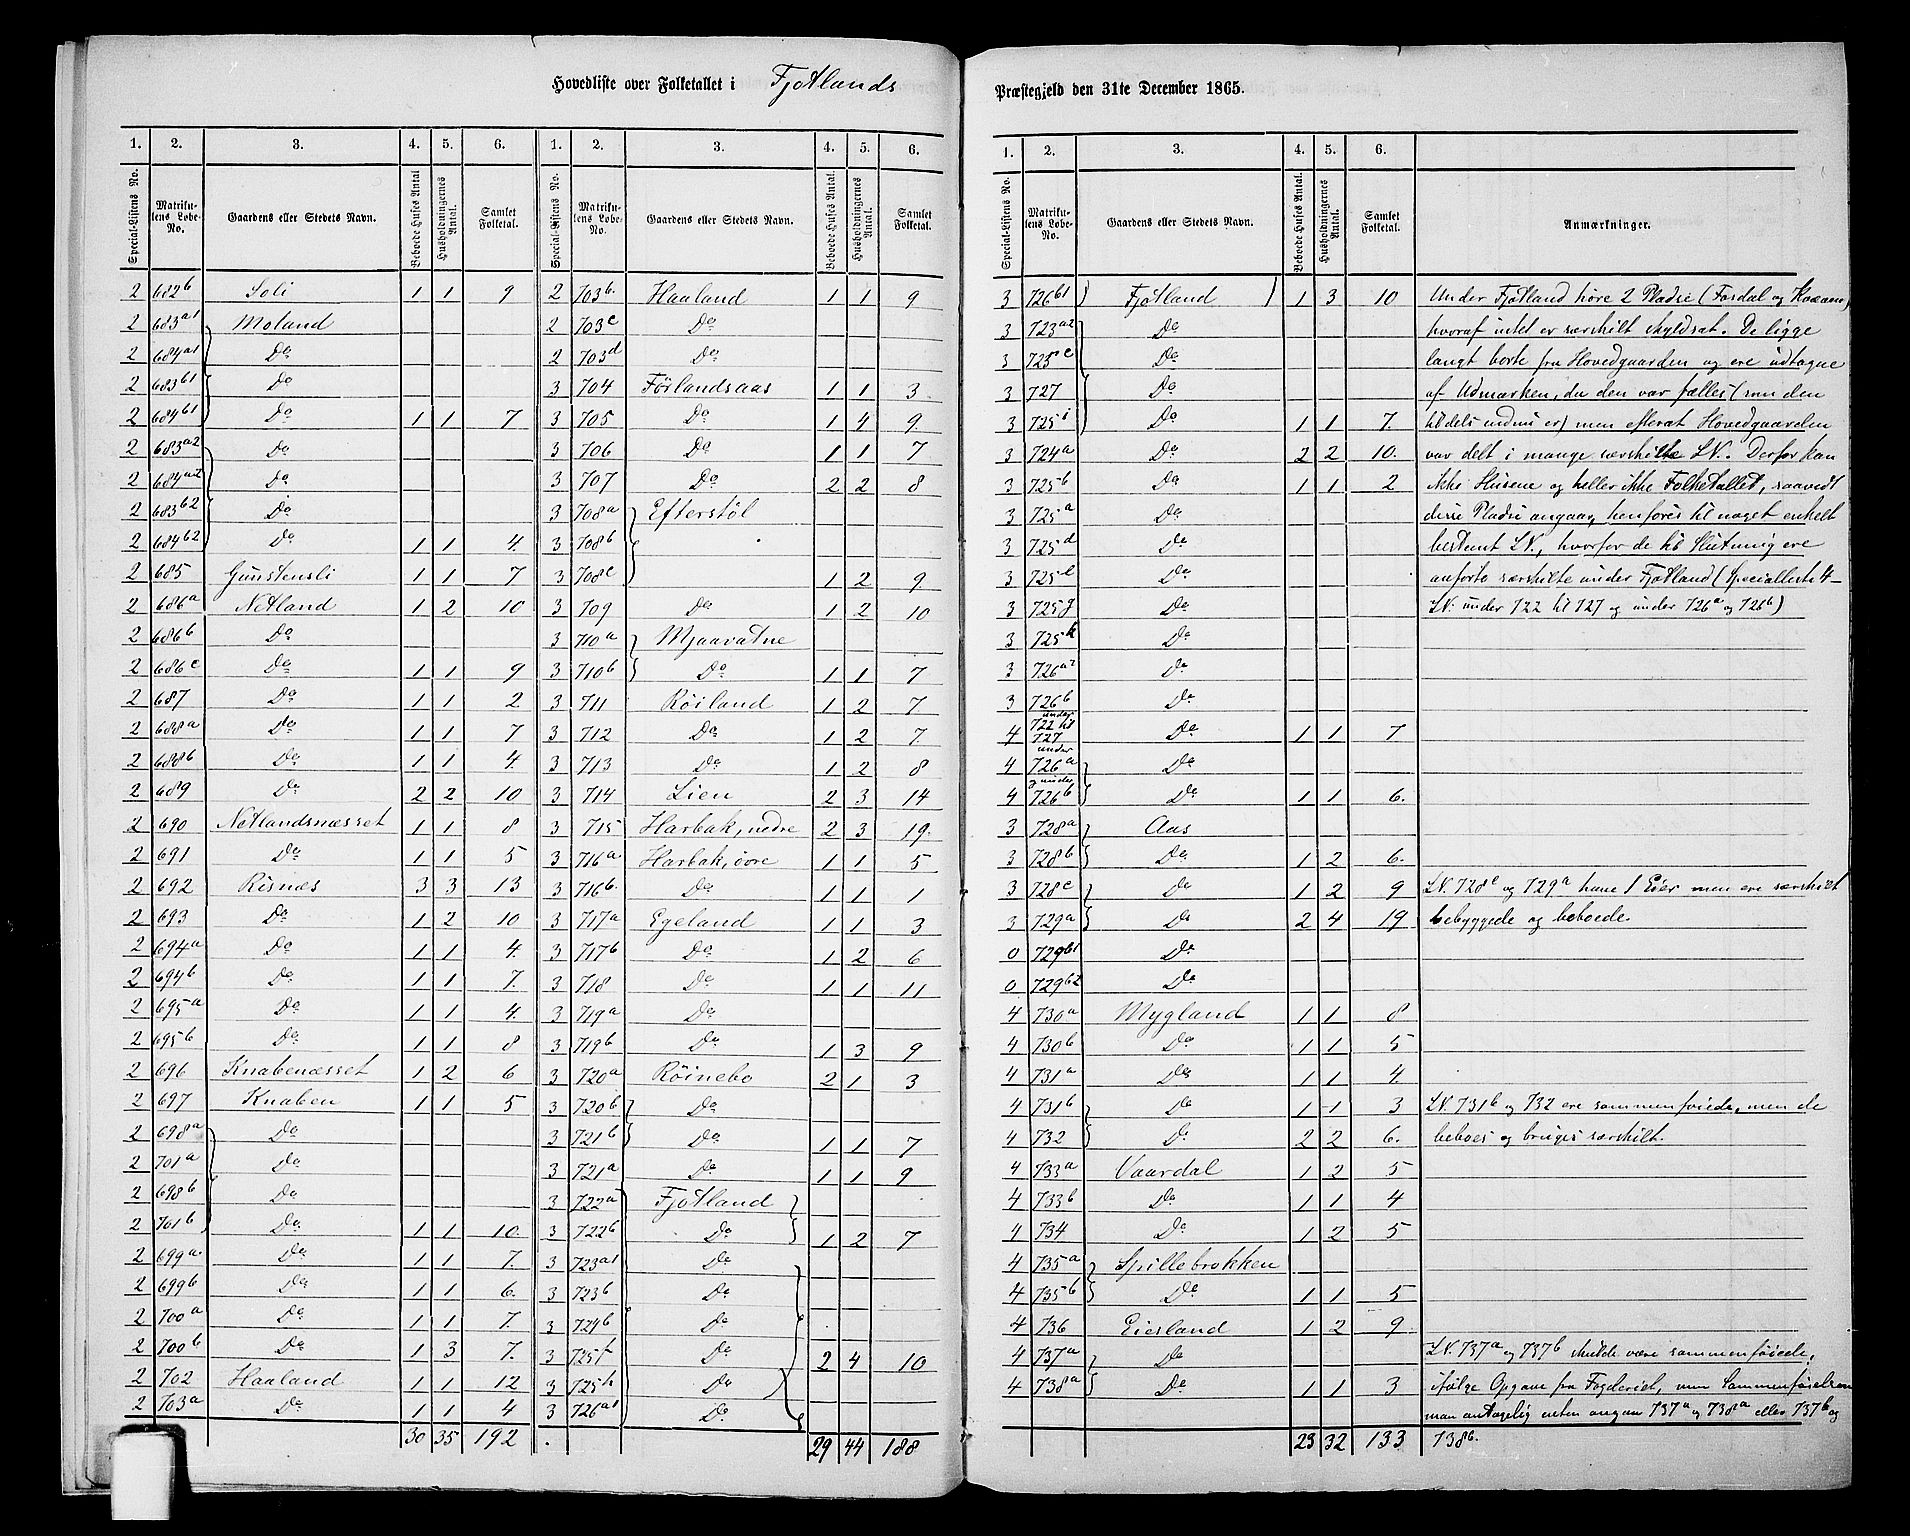 Hovedliste over Folketallet i Fjotlands
1. 2. 3. 4. 5. 6. 1. 2. 3. 4. 5. 6.
Special-Listens No. Matrikulens Løbe-No. Gaardens eller Stedets Navn. Beboede Huses Antal Husholdningernes Antal. Samlet Folketal. Special-Listens No. Matrikulens Løbe-No. Gaardens eller Stedets Navn. Beboede Huses Antal. Husholdningernes Antal. Samlet Folketal.
2 682b Soli 1 1 9 2 703b. Haaland 1 1 9
2 683a1 Moland 2 703c Do
2 684a1 Do 2 703d Do
2 683b1 Do 3 704 Førlandsaas 1 1 3
2 684b1 Do 1 1 7 3 705 Do 1 4 9.
2 683a2 Do 3 706 Do 1 1 7
2 684a2 Do 3 707 Do 2 2 8
2 683b2 Do 3 708a Efterstøl
2 684b2 Do 1 1 4. 3 708b
2 685 Gunstensli 1 1 7 3 708c 1 2 9
2 686a Netland 1 2 10 3 709 Do 1 2 10
2 686b Do 3 710a Mjaavatne
2 686c Do 1 1 9 3 710b Do 1 1 7
2 687 Do 1 1 2 3 711 Røiland 1 2 7
2 688a Do 1 1 7 3 712 Do 1 2 7
2 688b Do 1 1 4. 3 713 Do 1 2 8
2 689 Do 2 2 10 3 714 Lien 2 3 14
2 690 Netlandsnæsset 1 1 8 3 715 Harbak, nedre 2 3 19.
2 691 Do 1 1 5 3 716a Harbak, øvre 1 1 5
2 692 Risnæs 3 3 13 3 716b. Do 1 1 1
2 693 Do 1 2 10 3 717a Egeland 1 1 3
2 694a Do 1 1 4. 3 717b Do 1 2 6
2 694b Do 1 1 7. 3 718 Do 1 1 11
2 695a Do 1 1 4. 3 719a Do
2 695b Do 1 1 8 3 719b Do 1 3 9
2 696 Knabenæsset 1 2 6 3 720a Røinebo 2 1 3
2 697 Knaben 1 1 5 3 720b Do
2 698a Do 3 721b Do 1 1 7
2 701a Do 3 721a Do 1 1 9
2 698b Do 3 722a Fjotland
2 701b Do 1 1 10. 3 722b Do 1 2 7
2 699a. Do 1 1 7. 3 723a1 Do
2 699b Do 1 1 6. 3 723b Do
2 700a Do 1 1 7. 3 724b Do
2 700b Do 1 3 7. 3 725f Do 2 4 10
2 702 Haaland 1 1 12 3 725h Do
2 703a Do 1 1 4 3 726a1 Do
30 35 192 29 44 188
Præstegjeld den 31te December 1865.
1. 2. 3. 4. 5. 6.
Special-Listens No. Matrikulens Løbe-No. Gaardens eller Stedets Navn. Beboede Huses Antal. Husholdningernes Antal. Samlet Folketal. Anmærkninger.
3 726b1 Fjotland 1 3 10 Under Fjotland høre 2 Pladse (Fosdal og
3 723a2 Do hvoraf intet er særskilt skyldsat. De ligge
3 725c Do langt borte fra Hovedgaarden og ere udtagne
3 727 Do af Udmarken, da den var fælles (som den
3 725i Do 1 1 7. tildels endnu er) men efterat Hovedgaarden
3 724a Do 2 2 10. var delt i mange særskilte LN. Derfor kan
3 725b Do 1 1 2 ikke Husene og heller ikke Folketallet, saavidt
3 725a Do disse Pladse angaar, henføres til noget enkelt
3 725d Do bestemt LN., hvorfor de til Slutning ere
3 725e Do anførte særskilte under Fjotland (Specialliste 4-
3 725g Do LN: under 722 til 727 og under 726a og 726b)
3 725k Do
3 726a2 Do
3 726b Do
4 under 722 til 727 Do 1 1 7
4 under 726a Do
4 og under 726b Do 1 1 6.
3 728a Aas
3 728b Do 1 2 6.
3 728c Do 1 2 9 LN. 728c og 729a have 1 Eier men ere særskilt
3 729a Do 2 4 19 bebyggede og beboede.
0 729b1 Do
0 729b2 Do
4 730a Mygland 1 1 8
4 730b Do 1 1 5
4 731a Do 1 1 4.
4 731b Do 1 1 3 LN. 731b og 732 ere sammenføiede, men de
4 732 Do 2 2 6. beboes og bruges særskilt.
4 733a Vaardal 1 2 5
4 733b Do 1 1 4
4 734 Do 1 2 5
4 735a Spillebrokken
4 735b Do 1 1 5
4 736 Eiesland 1 2 9
4 737a Do LN. 737a og 737b skulde være sammenføiede,
4 738a Do 1 1 3 ifølge Opgave fra Fogderiet, men Sammenføielsen
maa antagelig enten angaa 737a og 738a eller 737b og
23 32 133 738b.